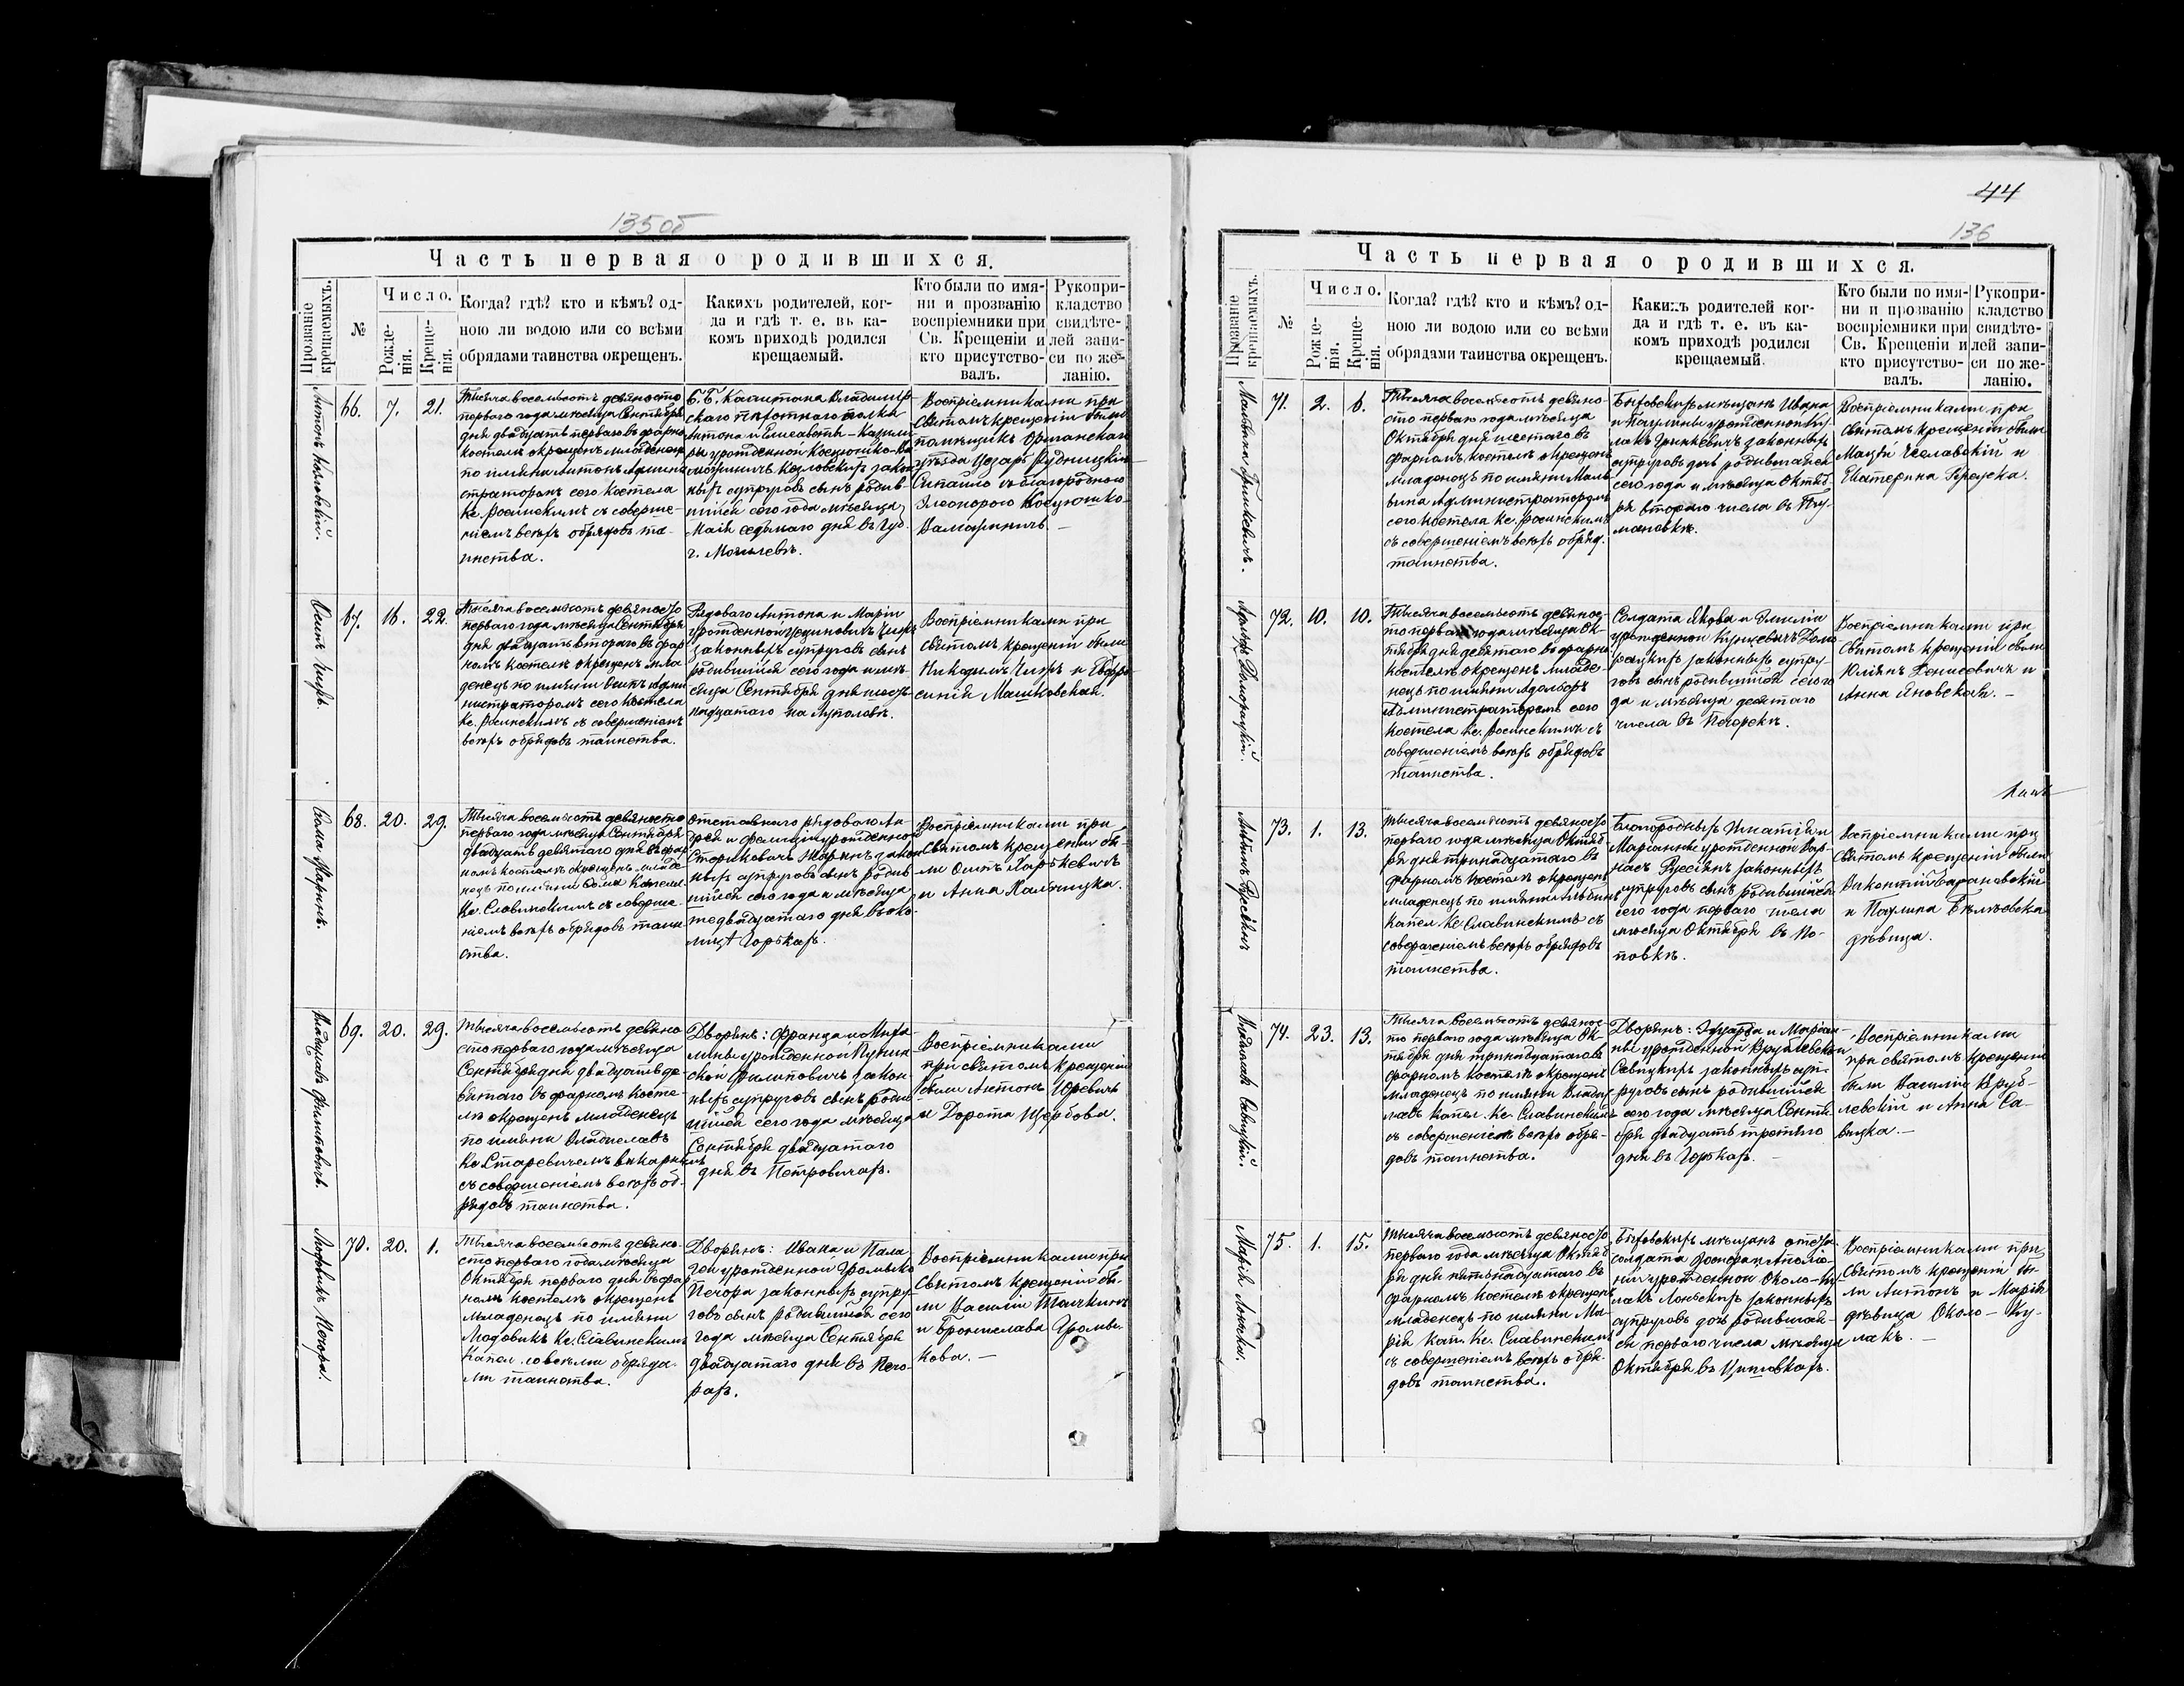 135 об
Часть первая о родившихся.
Прозваніе крещаемыхъ.
№
Число.
Рожде-
нія.
Креще-
нія.
Когда? гдѣ? кто и кѣмъ? од-
ною ли водою или со всѣми
обрядами таинства окрещенъ.
Какихъ родителей, ког-
да и гдѣ т. е. въ ка-
комъ приходѣ родился
крещаемый.
Кто были по имя-
ни и прозванію
воспріемники при
Св. Крещеніи и
кто присутство-
валъ.
Рукопри-
кладство
свидѣте-
лей запи-
си по же-
ланію.
Антонъ Козловскій.
66. 7. 21.
Тысяча восемьсотъ девяносто
перваго года мѣсяца Сентября
дня двадцать перваго въ фарно
костелѣ окрещенъ младенецъ
по имяни Антонъ Админи
страторомъ сего Костела
Кс. Росинскимъ съ соверше-
ніемъ всѣхъ обрядовъ та-
инства.
Б. Б. Капитана Владимір-
скаго пѣхотнаго полка
Антона и Елисаветы-Казими
ры урожденной Косцюшко-Ва
Козловскихъ закон
ныхъ супруговъ сынъ родив-
шійся сего года мѣсяца
Маія седьмаго дня въ губ.
г. Могилевѣ.
Воспріемниками при
Святомъ крещеніи были
помѣщикъ Оршанскаго
уѣзда Цезарь Рудницкій
съ благородною
Элеонорою Косцюшко-
Валюжиничъ. —
Осипъ Чижъ.
67. 16. 22.
Тысяча восемьсотъ девяносто
перваго года мѣсяца Сентября
дня двадцать втораго въ фар
номъ костелѣ окрещенъ мла
денецъ по имяни Осипъ Адми
нистраторомъ сего Костела
Кс. Росинскимъ съ совершеніемъ
всѣхъ обрядовъ таинства.
Рядоваго Антона и Маріи
урожденной Чижъ
законныхъ супруговъ сынъ
родившійся сего года и мѣ
сяца Сентября дня шест
надцатаго на Луполовѣ.
Воспріемниками при
святомъ крещеніи были
Никодимъ Чижъ и Евфро
синія Машковская.
Ѳома Жаринъ.
68. 20. 29.
Тысяча восемьсотъ девяносто
перваго года мѣсяца Сентября
двадцать девятаго дня въ фар
номъ костелѣ окрещенъ младе
нецъ по имяни Ѳома Капелл.
Кс. Славинскимъ съ соверше-
ніемъ всѣхъ обрядовъ таин
ства.
Отставнаго рядоваго Ан
дрея и Фелиціи урожденной
Жаринъ закон
ныхъ супруговъ сынъ родив
шійся сего года и мѣсяца
двадцатаго дня въ око-
лицѣ Горкахъ.
Воспріемниками при
Святомъ крещеніи бы-
ли Осипъ Харкевичъ
и Анна Калчицка.
Владиславъ Филиповичъ.
69. 20. 29.
Тысяча восемьсотъ девяно
сто перваго года мѣсяца
Сентября дня двадцать де-
вятаго въ фарномъ косте-
лѣ окрещенъ младенецъ
по имяни Владиславъ
Кс. Старевичемъ викарнымъ
съ совершеніемъ всѣхъ об-
рядовъ таинства.
Дворянъ: Франца и Миха-
лины урожденной
Филиповичъ закон
ныхъ супруговъ сынъ родив
шійся сего года мѣсяца
Сентября двадцатаго
дня въ Петровичахъ.
Воспріемниками
при святомъ крещеніи
были Антонъ Юревичъ
и Дорота Щербова.
Людовикъ Печора.
70. 20. 1.
Тысяча восемьсотъ девяно-
сто перваго года мѣсяца
Октября перваго дня въ фар
номъ костелѣ окрещенъ
младенецъ по имяни
Людовикъ Кс. Славинскимъ
Капел. со всѣми обряда-
ми таинства.
Дворянъ: Ивана и Пала
геи урожденной Громыко
Печора законныхъ супру-
говъ сынъ родившійся сего
года мѣсяца Сентября
двадцатаго дня въ Печо-
рахъ.
Воспріемниками при
Святомъ Крещеніи бы-
ли Василій
и Брониславa Громы-
кова. —
44
136
Часть первая о родившихся.
Прозваніе крещаемыхъ.
№
Число.
Рожде-
нія.
Креще-
нія.
Когда? гдѣ? кто и кѣмъ? од-
ною ли водою или со всѣми
обрядами таинства окрещенъ.
Какихъ родителей ког-
да и гдѣ т. е. въ ка-
комъ приходѣ родился
крещаемый.
Кто были по имя-
ни и прозванію
воспріемники при
Св. Крещеніи и
кто присутство-
валъ.
Рукопри-
кладство
свидѣте-
лей запи-
си по же-
ланію.
Мальвина Гринкевичъ.
71. 2. 6.
Тысяча восемьсотъ девяно-
сто перваго года мѣсяца
Октября дня шестаго въ
фарномъ костелѣ окрещенъ
младенецъ по имяни Маль
вина Администраторомъ
сего Костела Кс. Росинскимъ
съ совершеніемъ всѣхъ обряд.
таинства.
Быховскихъ мѣщанъ Ивана
и Паулины урожденной Ку
лакъ Гринкевичъ законныхъ
супруговъ дочь родившаяся
сего года и мѣсяца Октяб
ря втораго числа въ
Воспріемниками при
Святомъ крещеніи были
Мацѣй Чеславскій и
Екатерина
72. 10. 10.
Тысяча восемьсотъ девянос-
то перваго года мѣсяца Ок-
тября дня девятаго въ фарно
костелѣ окрещенъ младе-
нецъ по имяни Адольфъ
Администраторомъ сего
Костела Кс. Росинскимъ съ
совершеніемъ всѣхъ обрядовъ
таинства.
Солдата Якова и Эмиліи
урожденной Домо
рацкихъ законныхъ супру-
говъ сынъ родившійся сего го
да и мѣсяца десятаго
числа въ Печерскѣ.
Воспріемниками при
Святомъ крещеніи были
Юліянъ Денисевичъ и
Анна Яновская. —
73. 1. 13.
Тысяча восемьсотъ девяносто
перваго года мѣсяца Октяб-
ря дня тринадцатаго въ
фарномъ Костелѣ окрещенъ
младенецъ по имяни Альбинъ
Капел. Кс. Славинскимъ съ
совершеніемъ всѣхъ обрядовъ
таинства.
Благородныхъ Игнатія и
Маріанны урожденной Вар-
насъ Руссіянъ законныхъ
супруговъ сынъ родившійся
сего года перваго числа
мѣсяца Октября въ По-
повкѣ.
Воспріемниками при
Святомъ крещеніи были
Викентій Барановскій
и Паулина
дѣвица.
Владиславъ Савицкій.
74. 23. 13.
Тысяча восемьсотъ девянос-
то перваго года мѣсяца Ок-
тября дня тринадцатаго въ
фарномъ костелѣ окрещенъ
младенецъ по имяни Влади
лавъ Капел. Кс. Славинскимъ
съ совершеніемъ всѣхъ обря-
довъ таинства.
Дворянъ: Эдуарда и Маріан-
ны урожденной Врублевской
Савицкихъ законныхъ суп-
руговъ сынъ родившійся
сего года мѣсяца Сентя-
бря двадцать третьяго
дня въ Горкахъ. —
Воспріемниками
при святомъ крещеніи
были Василій Вруб-
левскій и Анна Са-
вицка. —
75. 1. 15.
Тысяча восемьсотъ девяносто
перваго года мѣсяца Октяб-
ря дня пятьнадцатаго въ
фарномъ Костелѣ окрещенъ
младенецъ по имяни Ма-
рія Кап. Кс. Славинскимъ
съ совершеніемъ всѣхъ обря-
довъ таинства.
Быховскихъ мѣщанъ
солдата
урожденной Около-Ку-
лакъ законныхъ
супруговъ дочь родившая-
ся перваго числа мѣсяца
Октября въ
Воспріемниками при
Святомъ крещеніи бы-
ли Антонъ и Марія
дѣвица Около-Ку-
лакъ. —